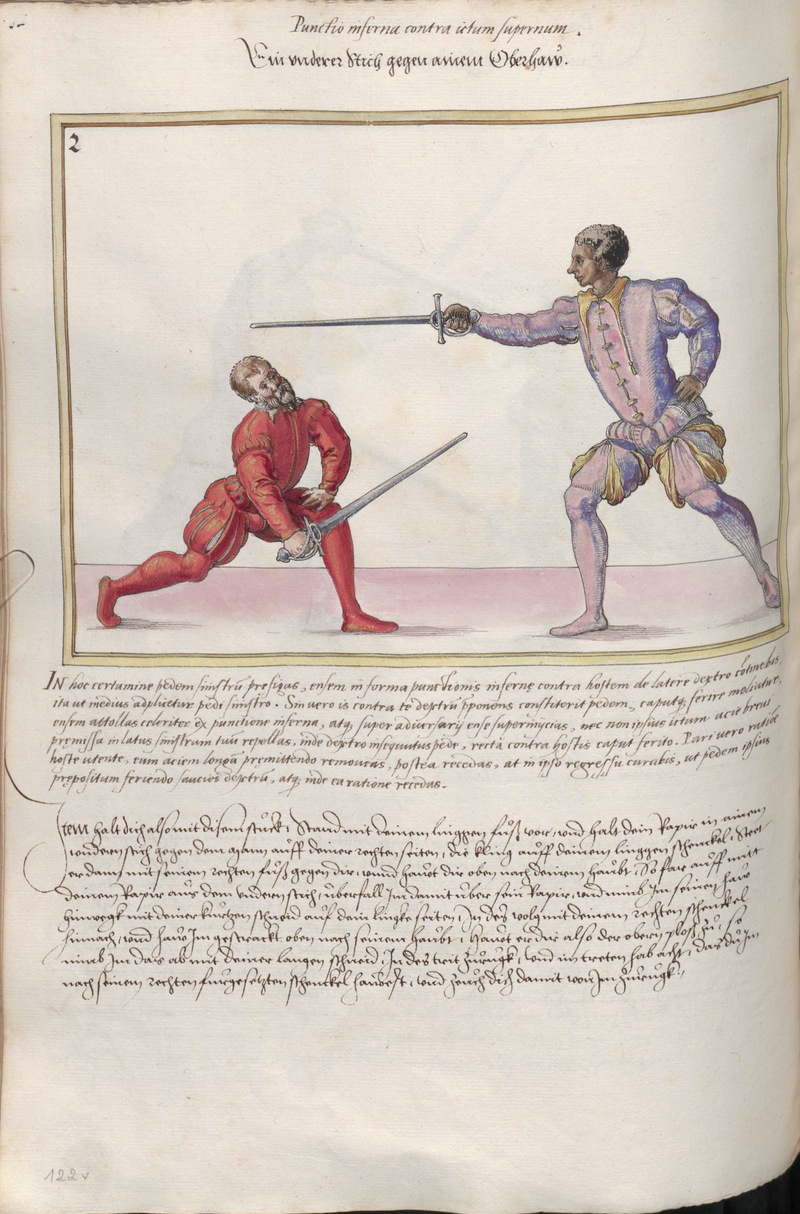 Punctio inferna contra ictum supernum.
Ein vnderer Stich gegen ainem Oberhaw.
2
IN hoc certamine pedem sinistrū prefigas, ensem in forma punctionis infernę contra hostem de latere dextro cōtinebis,
ita ut medius adplicetur pedi sinistro. Sin uero is contra te dextrū opponens constiterit pedem, caputq; ferire moliatur,
ensem attollas celeriter ex punctione inferna, atq; super aduersarij ense superinjcias, nec non ipsius ictum acie breui
premissa in latus sinistrum tuū repellas, inde dextro insequutus pede, rectà contra hostis caput ferito. Pari uero ratiōe
hoste utente, eum aciem longā premittendo remoueas, postea recedas, at in ipso regressu curabis, ut pedem ipsius
prepositum feriendo saucies dextrū, atq; inde ea ratione recedas.
Item halt dich also mit disem stuckh, Stand mit deinem linggen fuß vor, vnd halt dein Rapir in ainem
vnderen stich gegen dem mann auff deiner rechten seiten, die kling auff deinem linggen schenckel, Steet
er dann mit seinem rechten fuß gegen dir, vnnd hauwt dir oben nach deinem haubt, So far auff mit
deinem Rapir aus dem vndern stich, überfall Im damit über sein Rapir, vnd nimb Im seinen haw
hinwegk mit deiner kurtzen schneid auf dein lingke seiten, In des volg mit deinem rechten schenckel
hinnach, vnnd haw Im gestrackt oben nach seinem haubt, Hawt er dir also der obern plöß zu, so
nimb Im das ab mit deiner langen schneid, In des trit zurugk, vnd im treten hab acht, das du Im
nach seinem rechten furgesetzten schenckel hawest, vnd zeuch dich damit von Im zurugk.
122v